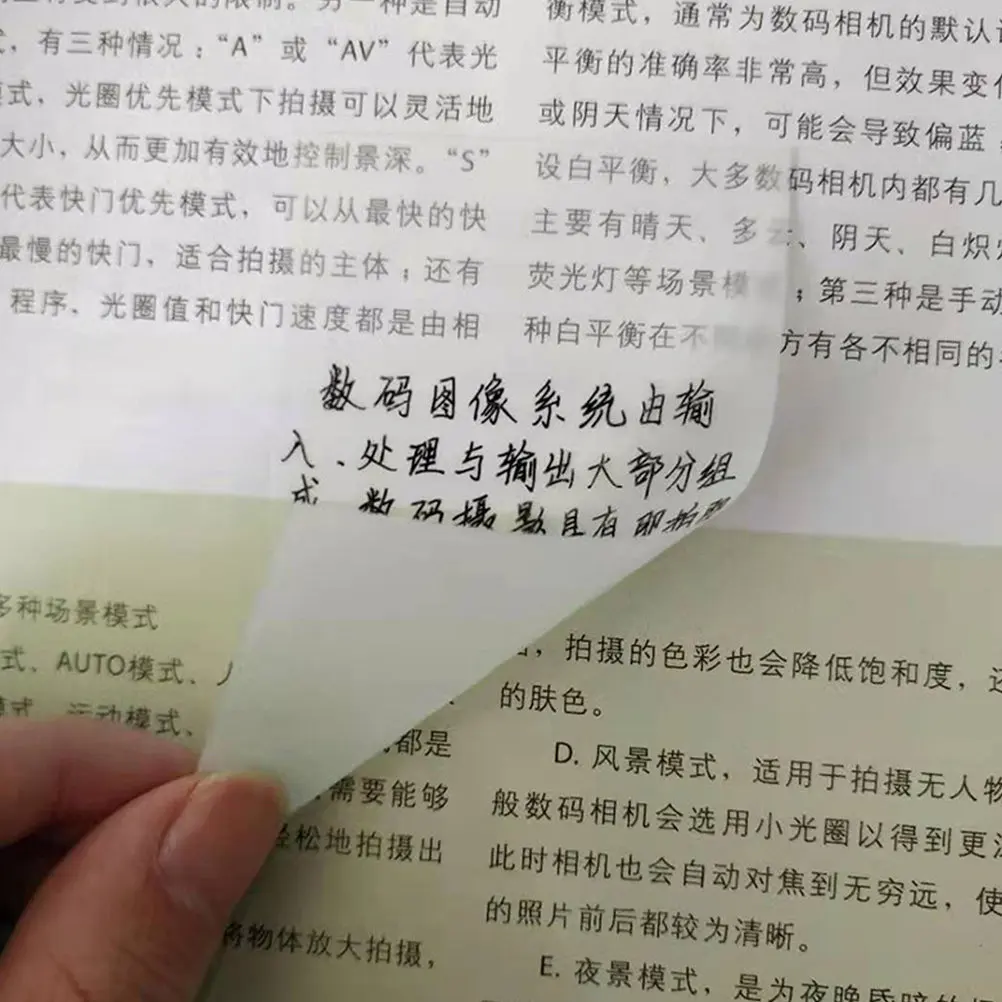 到很大的限制。另一种是自动
，有三种情况：“A”或“AV”代表光
模式，光圈优先模式下拍摄可以灵活地
大小，从而更加有效地控制景深。“S”
代表快门优先模式，可以从最快的快
最慢的快门，适合拍摄的主体；还有
程序，光圈值和快门速度都是由相
衡模式，通常为数码相机的默认
平衡的准确率非常高，但效果变
或阴天情况下，可能会导致偏蓝
设白平衡，大多数码相机内都有几
主要有晴天、多云、阴天、白炽
荧光灯等场景模；第三种是手动
种白平衡在不方有各不相同的
数码图像系统由输
入、处理与输出大部分组
成 数码摄影具有即拍即
多种场景模式
式、AUTO模式、人
模式、运动模式、
都是
需要能够
轻松地拍摄出
将物体放大拍摄，
，拍摄的色彩也会降低饱和度，还
的肤色。
D. 风景模式，适用于拍摄无人物
般数码相机会选用小光圈以得到更
此时相机也会自动对焦到无穷远，使
的照片前后都较为清晰。
E. 夜景模式，是为夜晚昏暗的